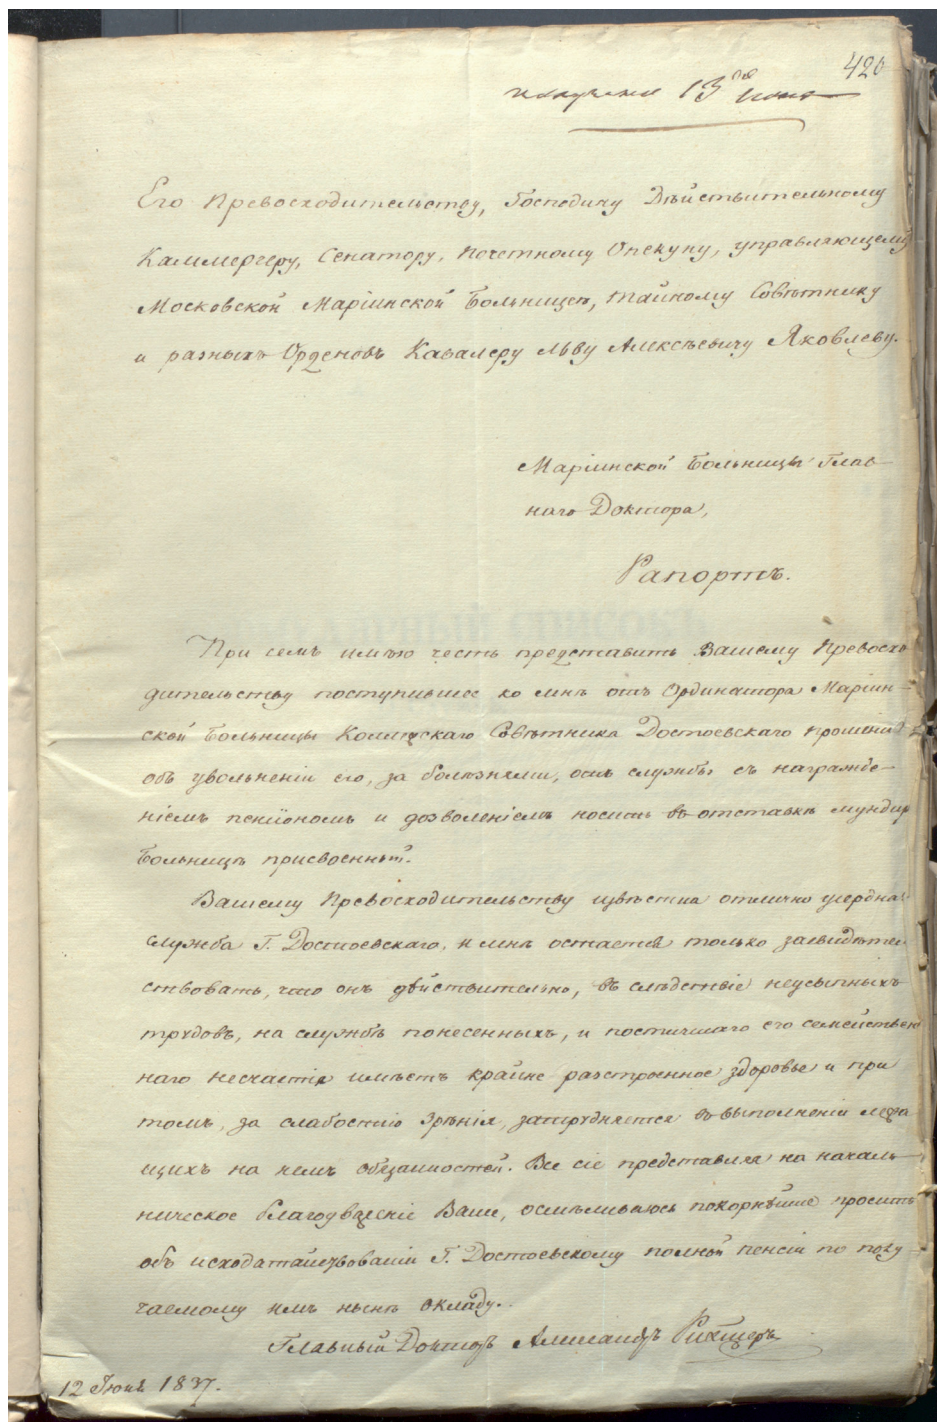 420
получено 13го Июня
Его Превосходительству, Господину Дѣйствительному
Каммергеру, Сенатору, Почетному Опекуну, управляющему
Московской Маріинской Больницею, Тайному Совѣтнику
и разныхъ Орденовъ Кавалеру Льву Алексѣевичу Яковлеву.
Маріинской Больницы Глав-
наго Доктора,
Рапортъ.
При семъ имѣю честь представить Вашему Превосхо
дительству поступившее ко мнѣ отъ Ординатора Маріин-
ской Больницы Коллежскаго Совѣтника Достоевскаго прошеніе
объ увольненіи его, за болѣзнями, отъ службы съ награжде-
ніемъ пенсіономъ и дозволеніемъ носить въ отставкѣ мундир
Больницѣ присвоенный.
Вашему Превосходительству извѣстна отлично усердная
служба Г. Достоевскаго, и мнѣ остается только засвидѣтель
ствовать, что онъ дѣйствительно, въ слѣдствіе неусыпныхъ
трудовъ, на службѣ понесенныхъ, и постигшаго его семействен
наго несчастія имѣетъ крайне разстроенное здоровье и при
томъ, за слабостію зрѣнія, затрудняется въ выполненіи лежа
щихъ на немъ обязанностей. Все сіе представляя на началь-
ническое благоуваженіе Ваше, осмѣливаюсь покорнѣйше просить
объ исходатайствованіи Г. Достоевскому полной пенсіи по полу-
чаемому имъ нынѣ окладу.
Главный Докторъ Александръ Рихтеръ
12 Іюня 1837.